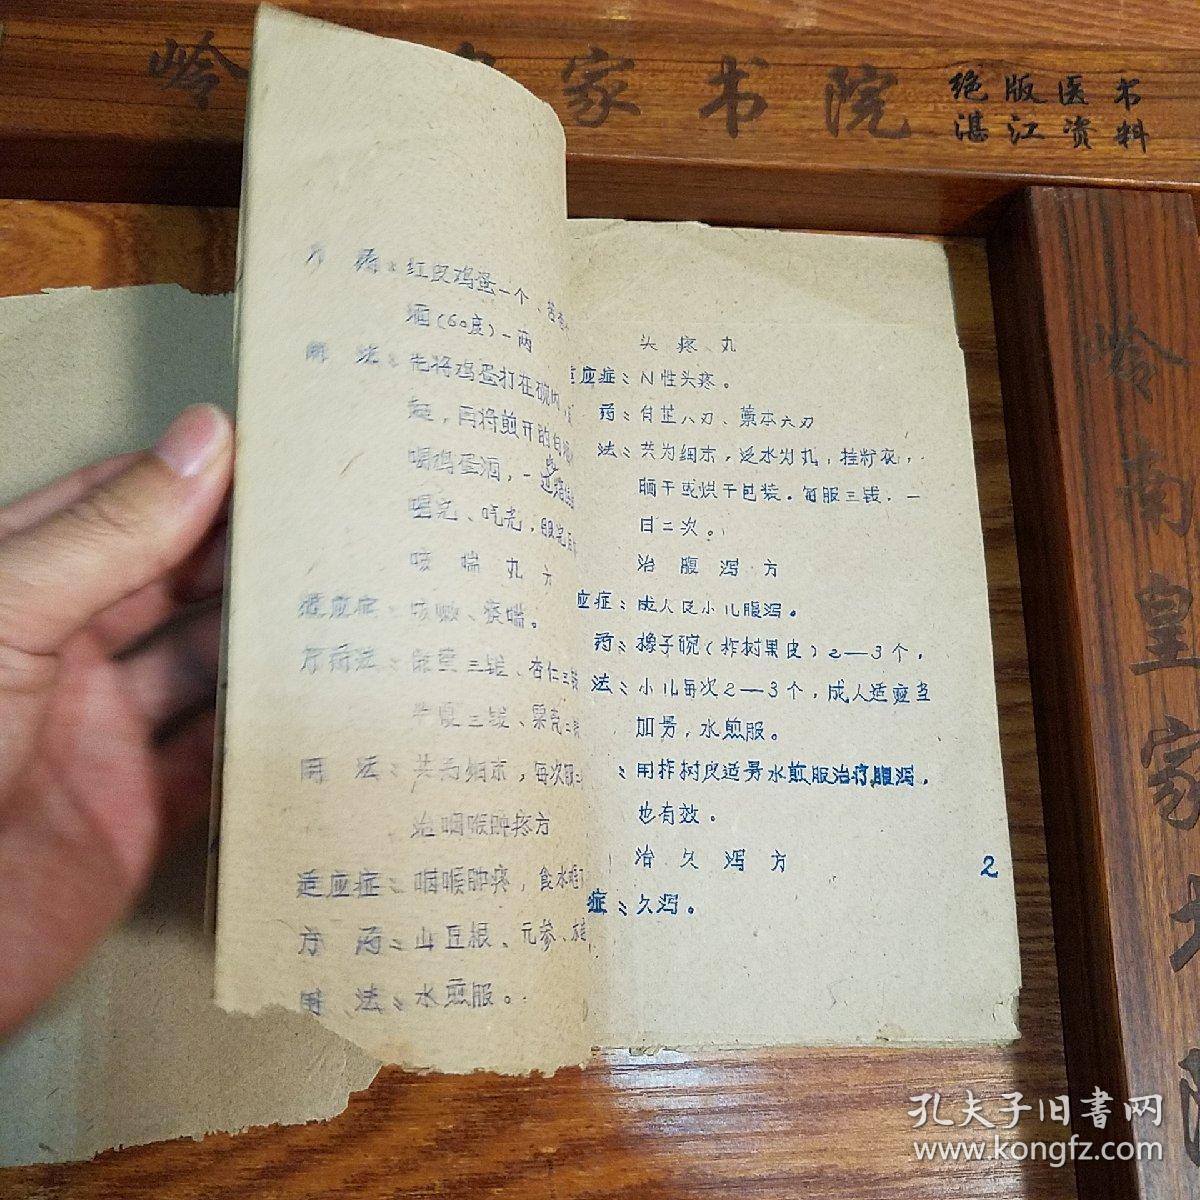 岭 家 书 院
绝版医书
湛江资料
方 药：红皮鸡蛋一个、
酒（60度）一两
用 法：先将鸡蛋打在碗内，
再将煎开的白
喝鸡蛋酒，一边
喝完、吃完，服完
咳 喘 丸 方
适应症：咳嗽、痰喘。
方药法：麻黄三钱、杏仁三钱
半夏三钱、果壳二钱
用 法：共为细末，每次服二
治咽喉肿疼方
适应症：咽喉肿疼，食水难
方 药：山豆根、元参、
用 法：水煎服。
头 疼 丸
适应症：N性头疼。
药：白芷八刃、藁本六刃
法：共为细末，泛水为丸，挂籽衣，
晒干或烘干包装。每服三钱，一
日二次。
治 腹 泻 方
应症：成人及小儿腹泻。
药：橡子碗（柞树果皮）2—3个，
法：小儿每次2—3个，成人适应当
加另，水煎服。
：用柞树皮适另水煎服治疗腹泻，
也有效。
治 久 泻 方
症：久泻。
2
岭南皇家书院
孔夫子旧书网
www.kongfz.com